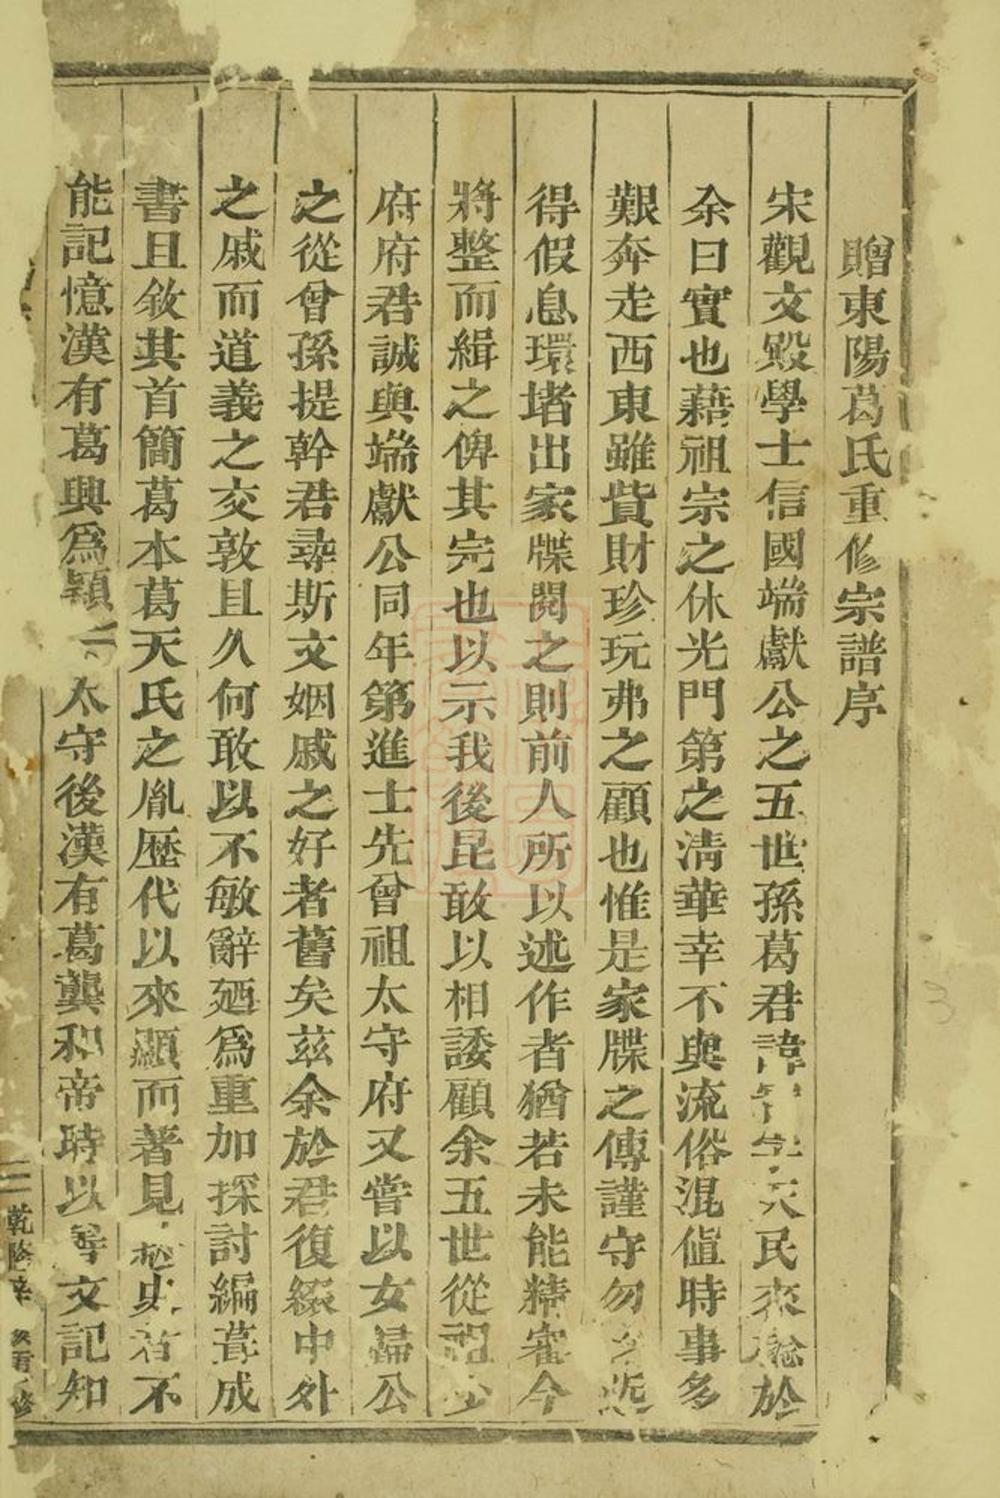 贈東陽葛氏重修宗譜序
宋觀文殿學士信國端獻公之五世孫葛君諱天民來於
余曰實也藉祖宗之休光門第之清華幸不與流俗混値時事多
艱奔走西東雖貲財珍玩弗之顧也惟是家牒之傳謹守勿
得假息環堵出家牒閱之則前人所以述作者猶若未能精審今
將整而緝之俾其完也以示我後昆敢以相諉顧余五世從祖
府府君誠與端獻公同年第進士先曾祖太守府又嘗以女歸公
之從曾孫提幹君尋斯文姻戚之好者舊矣茲余於君復綴中外
之戚而道義之交敦且久何敢以不敏辭廼爲重加採討編葺成
書且敘其首簡葛本葛天氏之胤歷代以來顯而著見史若不
能記憶漢有葛興爲潁太守後漢有葛龔和帝時以善文記知
乾隆辛亥重修